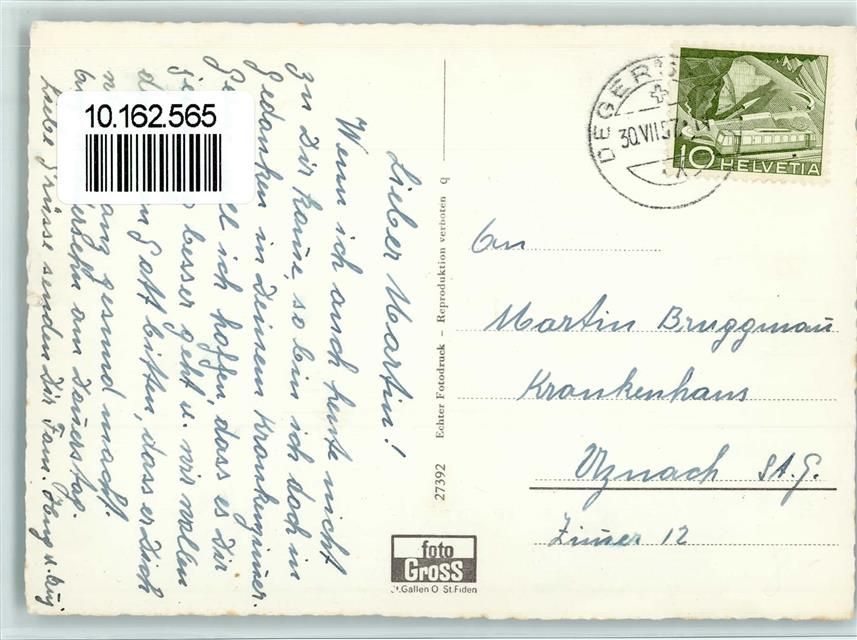 10.162.565
Lieber Martin!
Wenn ich auch heute nicht
zu Dir kame, so bin ich doch in
Gedanken in Deinem Krankenzimer.
ich hoffen dass es Dir
besser geht u. wir wollen
Gott bitten, dass er Dich
gesund macht.
am Donerstag.
Liebe Grüsse senden Dir Fam.
27392 Echter Fotodruck – Reproduktion verboten q
foto
Gross
St.Gallen O St.Fiden
DEGER
30.VII.57
10 HELVETIA
An
Martin Bruggman
Krankenhaus
Uznach St.G.
Zimer 12